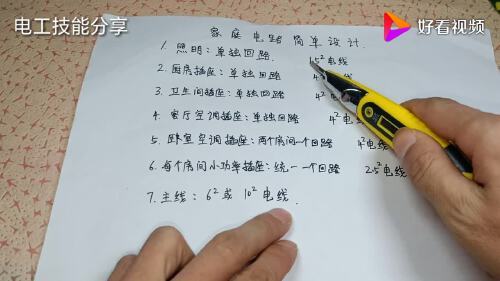 电工技能分享
好看视频
家庭电路简单设计
1. 照明：单独回路 1.5² 电线
2. 厨房插座：单独回路 4²
3. 卫生间插座：单独回路 4² 电线
4. 客厅空调插座：单独回路 4² 电线
5. 卧室空调插座：两个房间一个回路 4² 电线
6. 每个房间小功率插座：统一一个回路 2.5² 电线
7. 主线：6² 或 10² 电线.